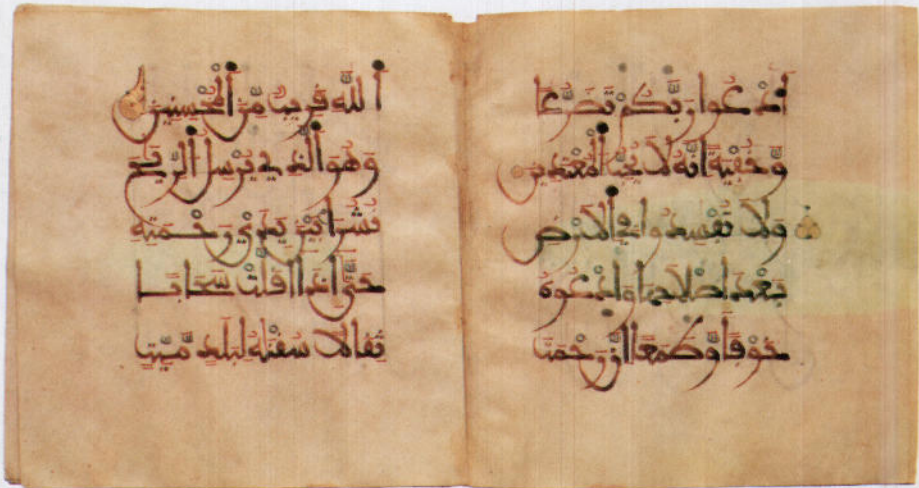 ٱدْعُوا رَبَّكُمْ تَضَرُّعًا
وَخُفْيَةً اِنَّهُ لَا يُحِبُّ ٱلْمُعْتَدِينَ
وَلَا تُفْسِدُوا فِي ٱلَارْضِ
بَعْدَ إِصْلَاحِهَا وَٱدْعُوهُ
خَوْفًا وَطَمَعًا اِنَّ رَحْمَتَ
ٱللَّهِ قَرِيبٌ مِّنَ ٱلْمُحْسِنِينَ
وَهُوَ ٱلَّذِي يُرْسِلُ ٱلرِّيَٰحَ
نُشُرًا بَيْنَ يَدَيْ رَحْمَتِهِ
حَتَّىٰ إِذَا أَقَلَّتْ سَحَابًا
ثِقَالًا سُقْنَٰهُ لِبَلَدٍ مَّيِّتٍ